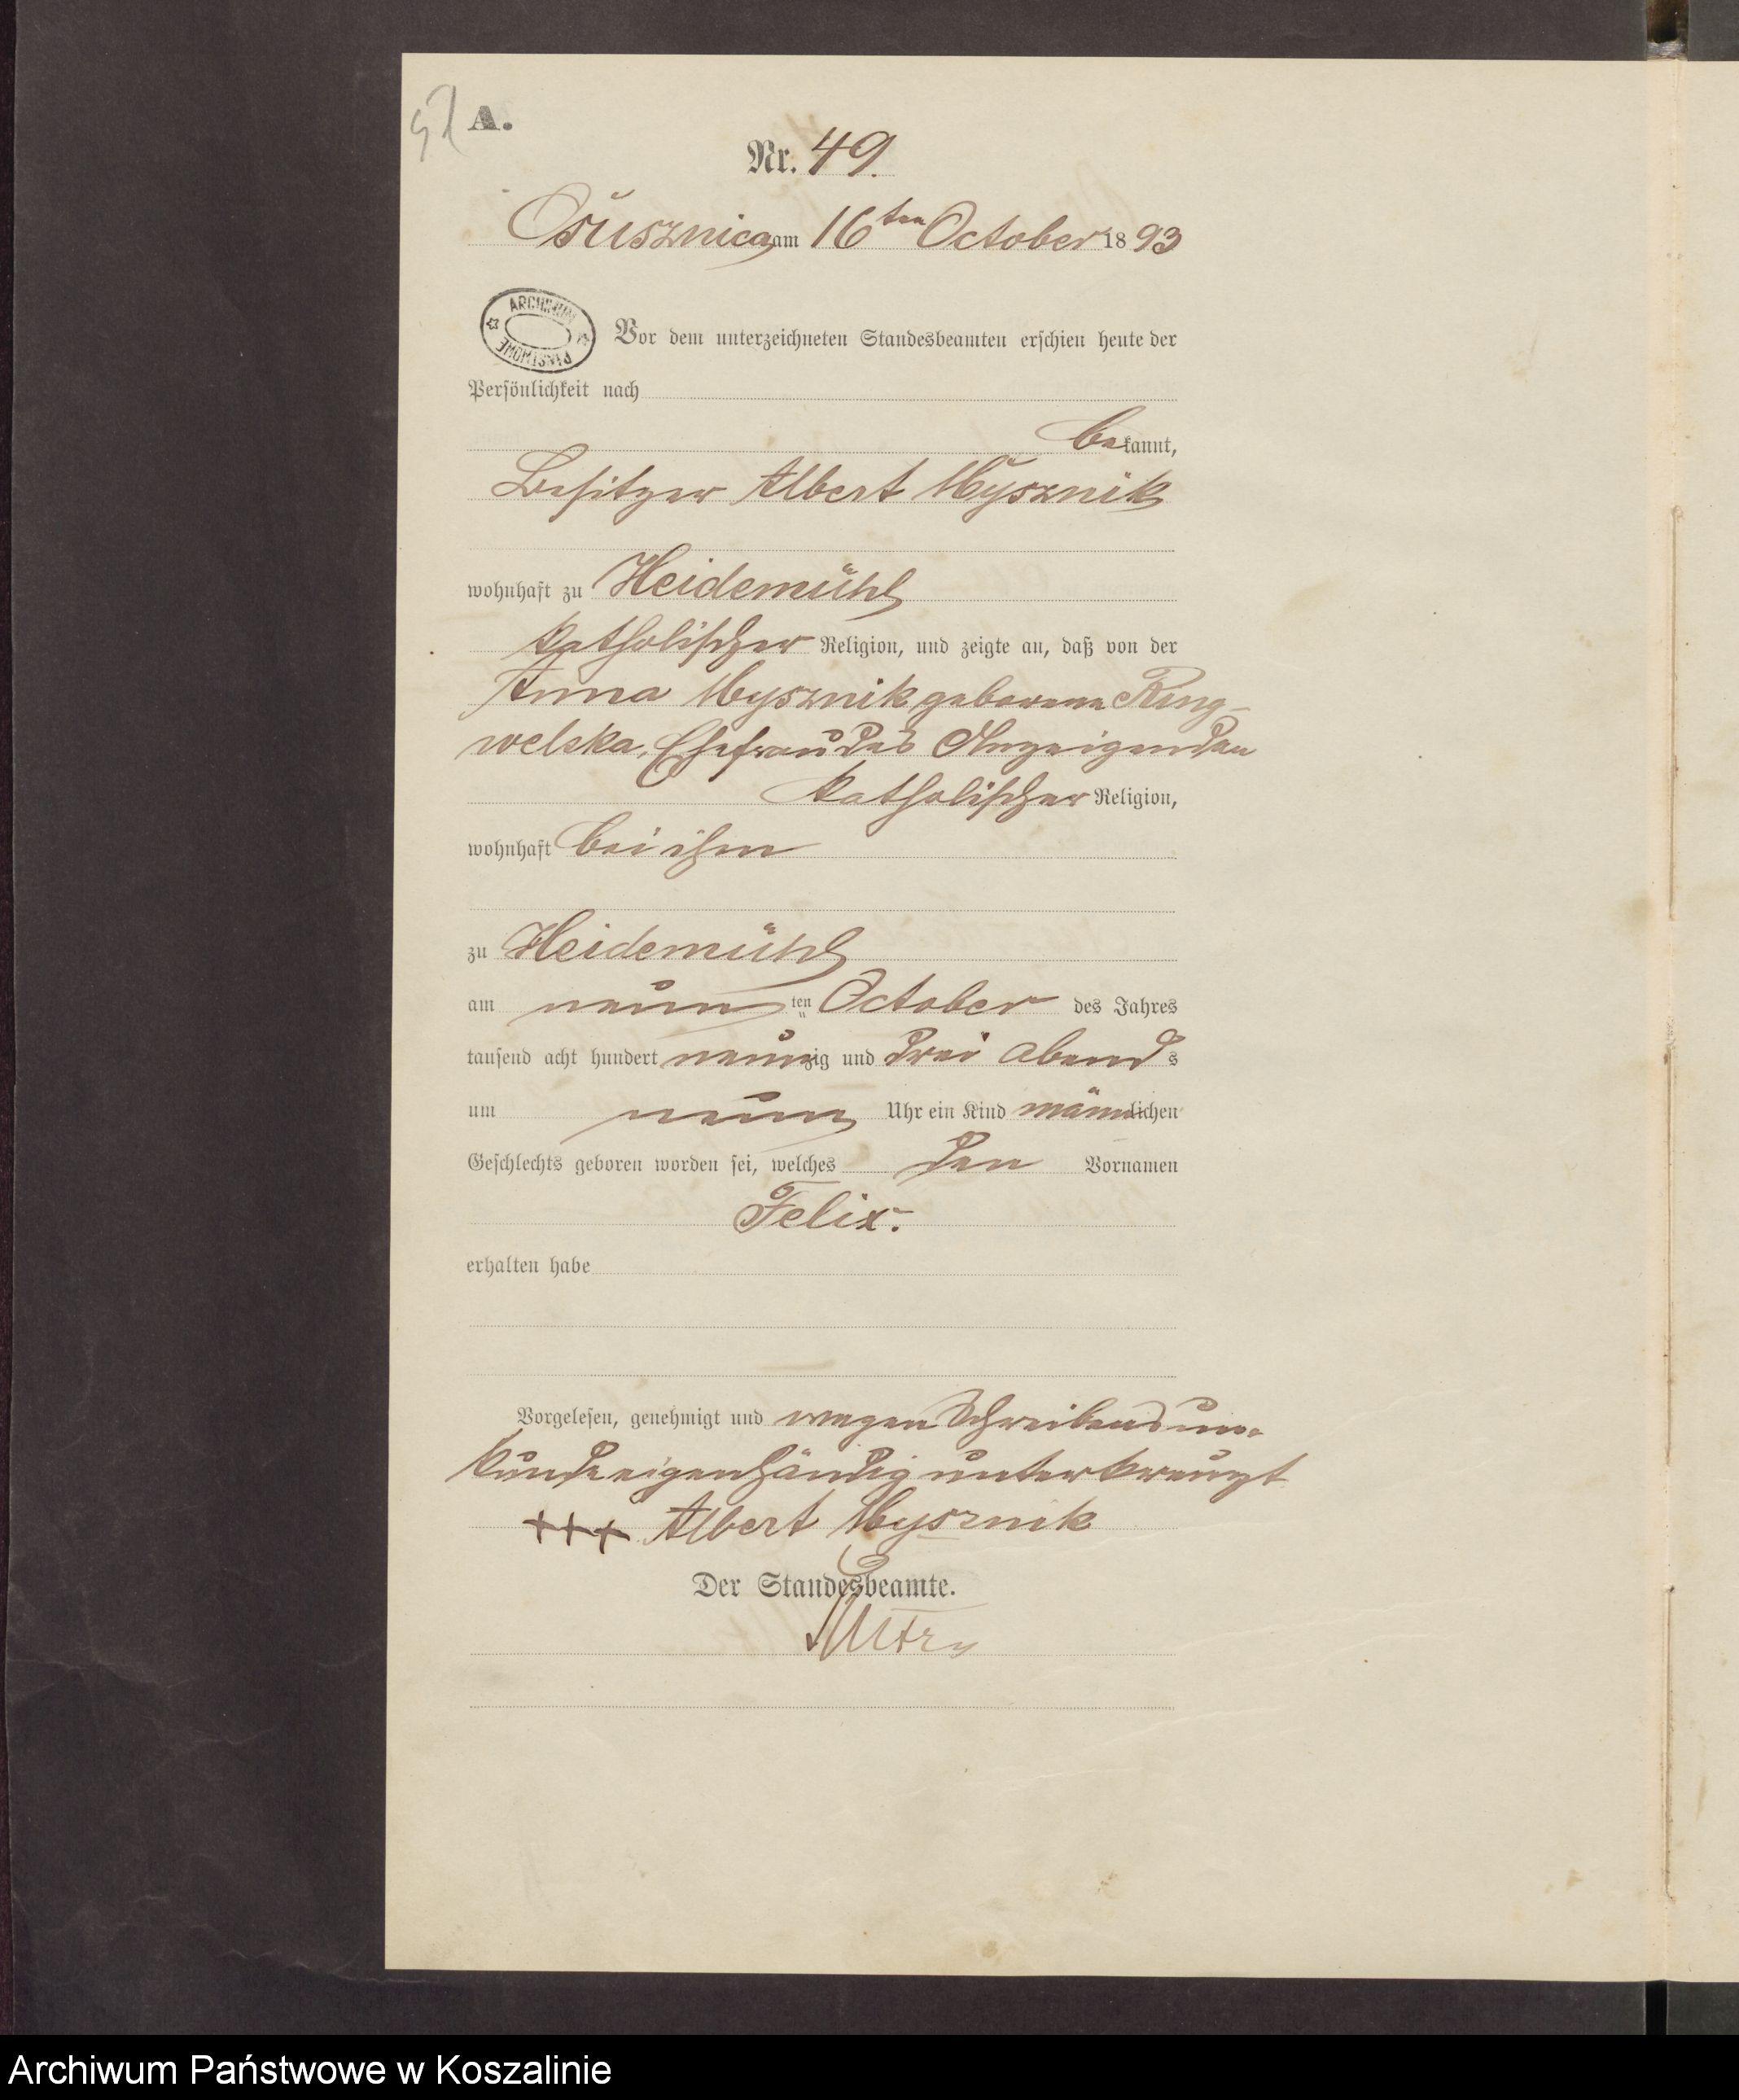 A.
Nr. 49.
Osusznica am 16ten October 1893
ARCHIWUM
PAŃSTWOWE
Vor dem unterzeichneten Standesbeamten erschien heute der
Persönlichkeit nach
bekannt,
Besitzer Albert Mysznik
wohnhaft zu Heidemühl
katholischer Religion, und zeigte an, daß von der
Anna Mysznik geborene Ring-
welska, Ehefrau des Anzeigenden
katholischer Religion,
wohnhaft bei ihm
zu Heidemühl
am neunten October des Jahres
tausend acht hundert neunzig und drei Abends
um neun Uhr ein Kind männlichen
Geschlechts geboren worden sei, welches den Vornamen
Felix.
erhalten habe
Vorgelesen, genehmigt und wegen Schreibensun-
kunde eigenhändig unterkreuzt
+++ Albert Mysznik
Der Standesbeamte.
Archiwum Państwowe w Koszalinie